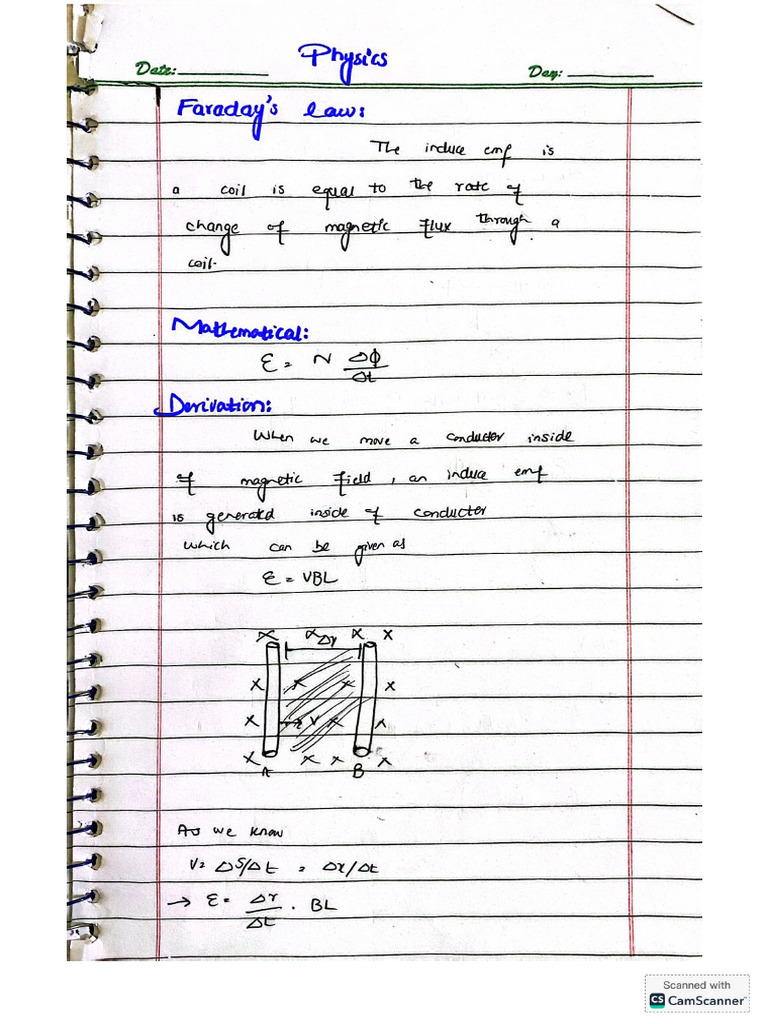 Physics
Date:
Day:
Faraday's Law:
The induce emf is
a coil is equal to the rate of
change of magnetic flux through a
coil.
Mathematical:
ε = N Δϕ/Δt
Derivation:
When we move a conductor inside
of magnetic field, an induce emf
is generated inside of conductor
which can be given as
ε = VBL
x x Δx x x
x x x x
x v x x
x x x x
A B
As we know
V= ΔS/Δt = Δx/Δt
→ ε = Δx/Δt . BL
Scanned with
CS CamScanner